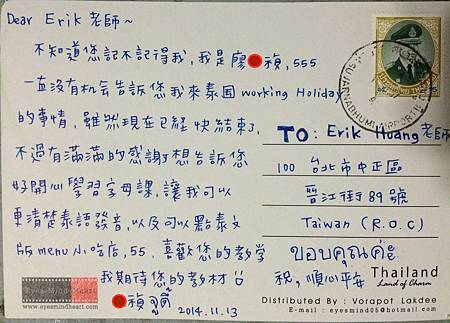 Dear Erik 老師～
不知道您記不記得我，我是廖 禎，555
一直沒有机会告訴您我來泰囯working Holiday
的事情，雖然現在已經快結束了，
不過有滿滿的感謝想告訴您
好開心學習字母課，讓我可以
更清楚泰語發音，以及可以點泰文
版menu小吃店，55，喜歡您的教学
我期待您的教材
禎 2014.11.13
TO: Erik Huang老師
100 台北市中正區
晋江街89號
Taiwan (R.O.C)
ขอบคุณค่ะ
祝，順心平安
Thailand
Land of Charm
EyesMind Heart
www.eyesmindheart.com
Distributed By : Vorapot Lakdee
E-mail : eyesmind05@hotmail.com
SUVARNABHUMI AIRPORT